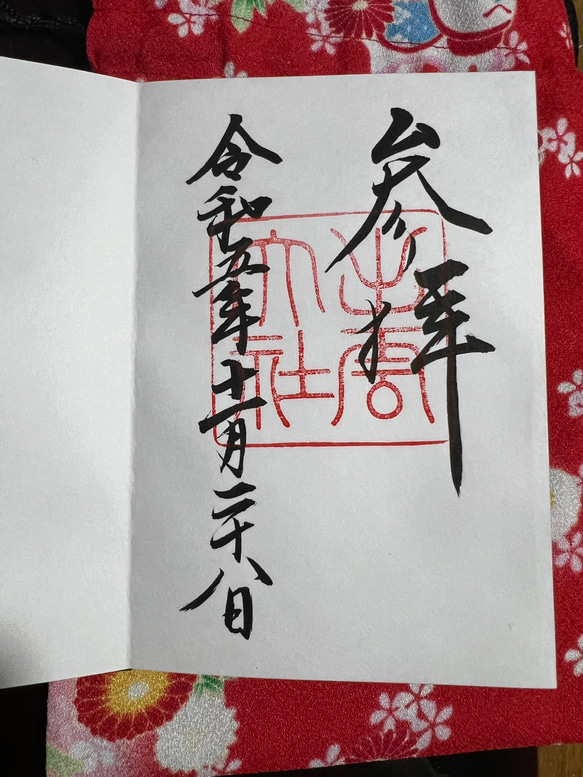 参拝
出雲大社
令和五年十一月二十八日